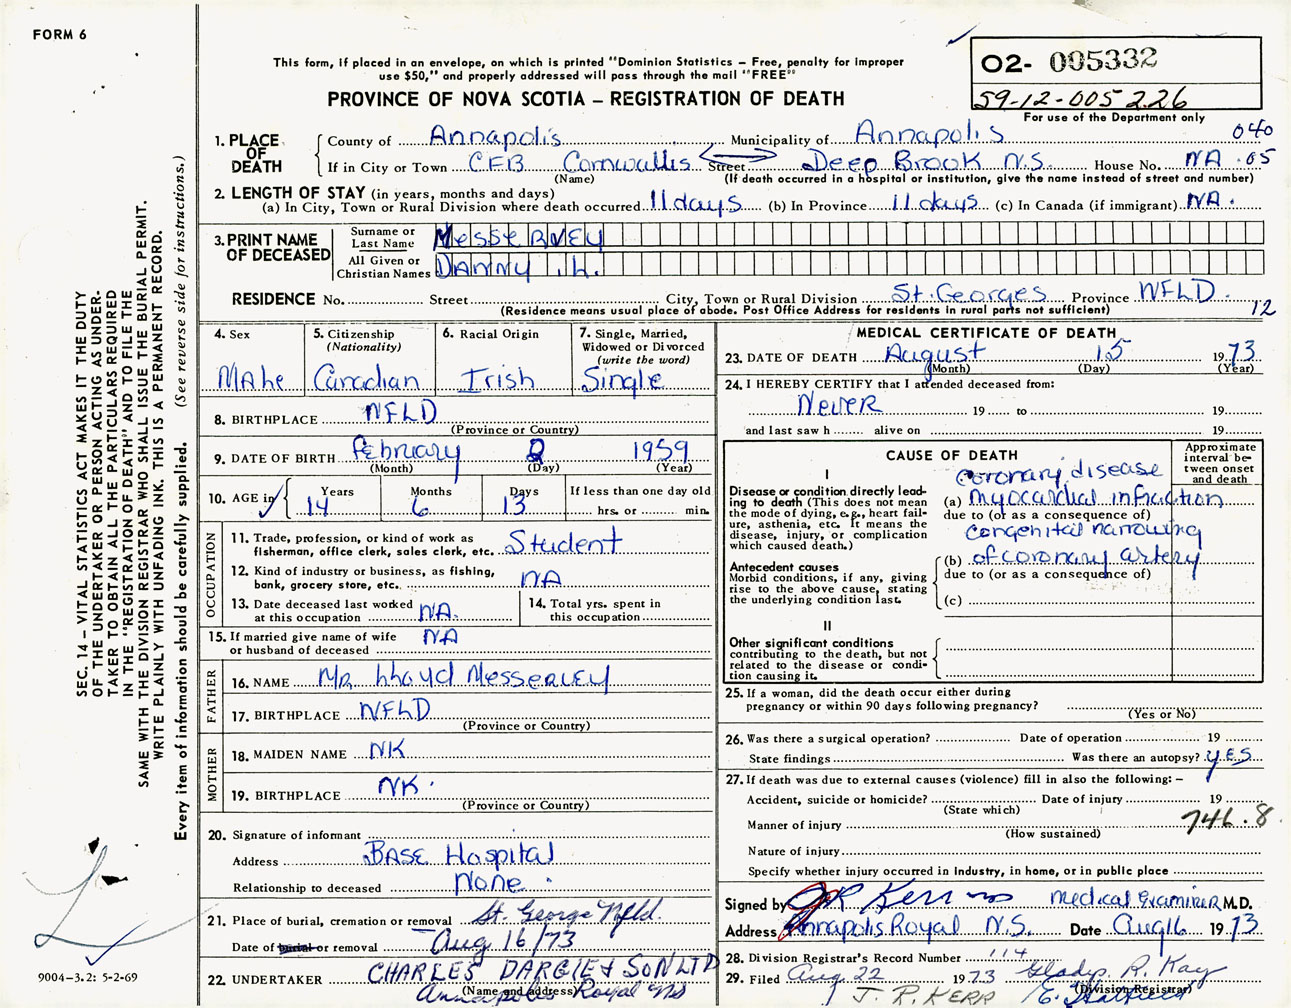 FORM 6
This form, if placed in an envelope, on which is printed "Dominion Statistics – Free, penalty for improper
use $50," and properly addressed will pass through the mail "FREE"
PROVINCE OF NOVA SCOTIA – REGISTRATION OF DEATH
O2- 005332
59-12-005226
For use of the Department only
040
1. PLACE OF DEATH
County of Annapolis Municipality of Annapolis
If in City or Town CFB Cornwallis Street Deep Brook N.S. House No. NA .05
(Name) (If death occurred in a hospital or institution, give the name instead of street and number)
2. LENGTH OF STAY (in years, months and days)
(a) In City, Town or Rural Division where death occurred 11 days (b) In Province 11 days (c) In Canada (if immigrant) NA.
3. PRINT NAME OF DECEASED
Surname or Last Name MESSERVEY
All Given or Christian Names DANNY . L.
RESIDENCE No. Street City, Town or Rural Division St. Georges Province NFLD.
(Residence means usual place of abode. Post Office Address for residents in rural parts not sufficient) 12
4. Sex
MAle
5. Citizenship
(Nationality)
Canadian
6. Racial Origin
Irish
7. Single, Married,
Widowed or Divorced
(write the word)
Single
8. BIRTHPLACE NFLD
(Province or Country)
9. DATE OF BIRTH February 2 1959
(Month) (Day) (Year)
10. AGE in
Years 14
Months 6
Days 13
If less than one day old
hrs. or min.
OCCUPATION
11. Trade, profession, or kind of work as
fisherman, office clerk, sales clerk, etc. Student
12. Kind of industry or business, as fishing,
bank, grocery store, etc. NA
13. Date deceased last worked
at this occupation NA.
14. Total yrs. spent in
this occupation
15. If married give name of wife
or husband of deceased NA
FATHER
16. NAME MR Lloyd MESSERVEY
17. BIRTHPLACE NFLD
(Province or Country)
MOTHER
18. MAIDEN NAME NK
19. BIRTHPLACE NK.
(Province or Country)
20. Signature of informant
Address BASE Hospital
Relationship to deceased None.
21. Place of burial, cremation or removal St. George Nfld.
Date of burial or removal Aug 16/73
22. UNDERTAKER CHARLES DARGIE & SON LTD
(Name and address) Annapolis Royal NS
MEDICAL CERTIFICATE OF DEATH
23. DATE OF DEATH August 15 1973
(Month) (Day) (Year)
24. I HEREBY CERTIFY that I attended deceased from:
Never 19 to 19
and last saw h alive on 19
CAUSE OF DEATH
Approximate
interval be-
tween onset
and death
I
Disease or condition directly lead-
ing to death (This does not mean
the mode of dying, e.g., heart fail-
ure, asthenia, etc. It means the
disease, injury, or complication
which caused death.)
coronary disease
(a) myocardial infraction
due to (or as a consequence of)
congenital narrowing
(b) of coronary artery
due to (or as a consequence of)
(c)
Antecedent causes
Morbid conditions, if any, giving
rise to the above cause, stating
the underlying condition last.
II
Other significant conditions
contributing to the death, but not
related to the disease or condi-
tion causing it.
25. If a woman, did the death occur either during
pregnancy or within 90 days following pregnancy?
(Yes or No)
26. Was there a surgical operation? Date of operation 19
State findings Was there an autopsy? YES
27. If death was due to external causes (violence) fill in also the following: –
Accident, suicide or homicide? Date of injury 19
(State which)
746.8
Manner of injury
(How sustained)
Nature of injury
Specify whether injury occurred in industry, in home, or in public place
Signed by JR Kerr Medical Examiner M.D.
Address Annapolis Royal N.S. Date Aug 16 1973
28. Division Registrar's Record Number 114
29. Filed Aug. 22 1973 Gladys R. Kay
(Division Registrar)
J. R. KERR
SEC. 14 – VITAL STATISTICS ACT MAKES IT THE DUTY
OF THE UNDERTAKER OR PERSON ACTING AS UNDER-
TAKER TO OBTAIN ALL THE PARTICULARS REQUIRED
IN THE "REGISTRATION OF DEATH" AND TO FILE THE
SAME WITH THE DIVISION REGISTRAR WHO SHALL ISSUE THE BURIAL PERMIT.
WRITE PLAINLY WITH UNFADING INK. THIS IS A PERMANENT RECORD.
Every item of information should be carefully supplied. (See reverse side for instructions.)
9004-3.2: 5-2-69